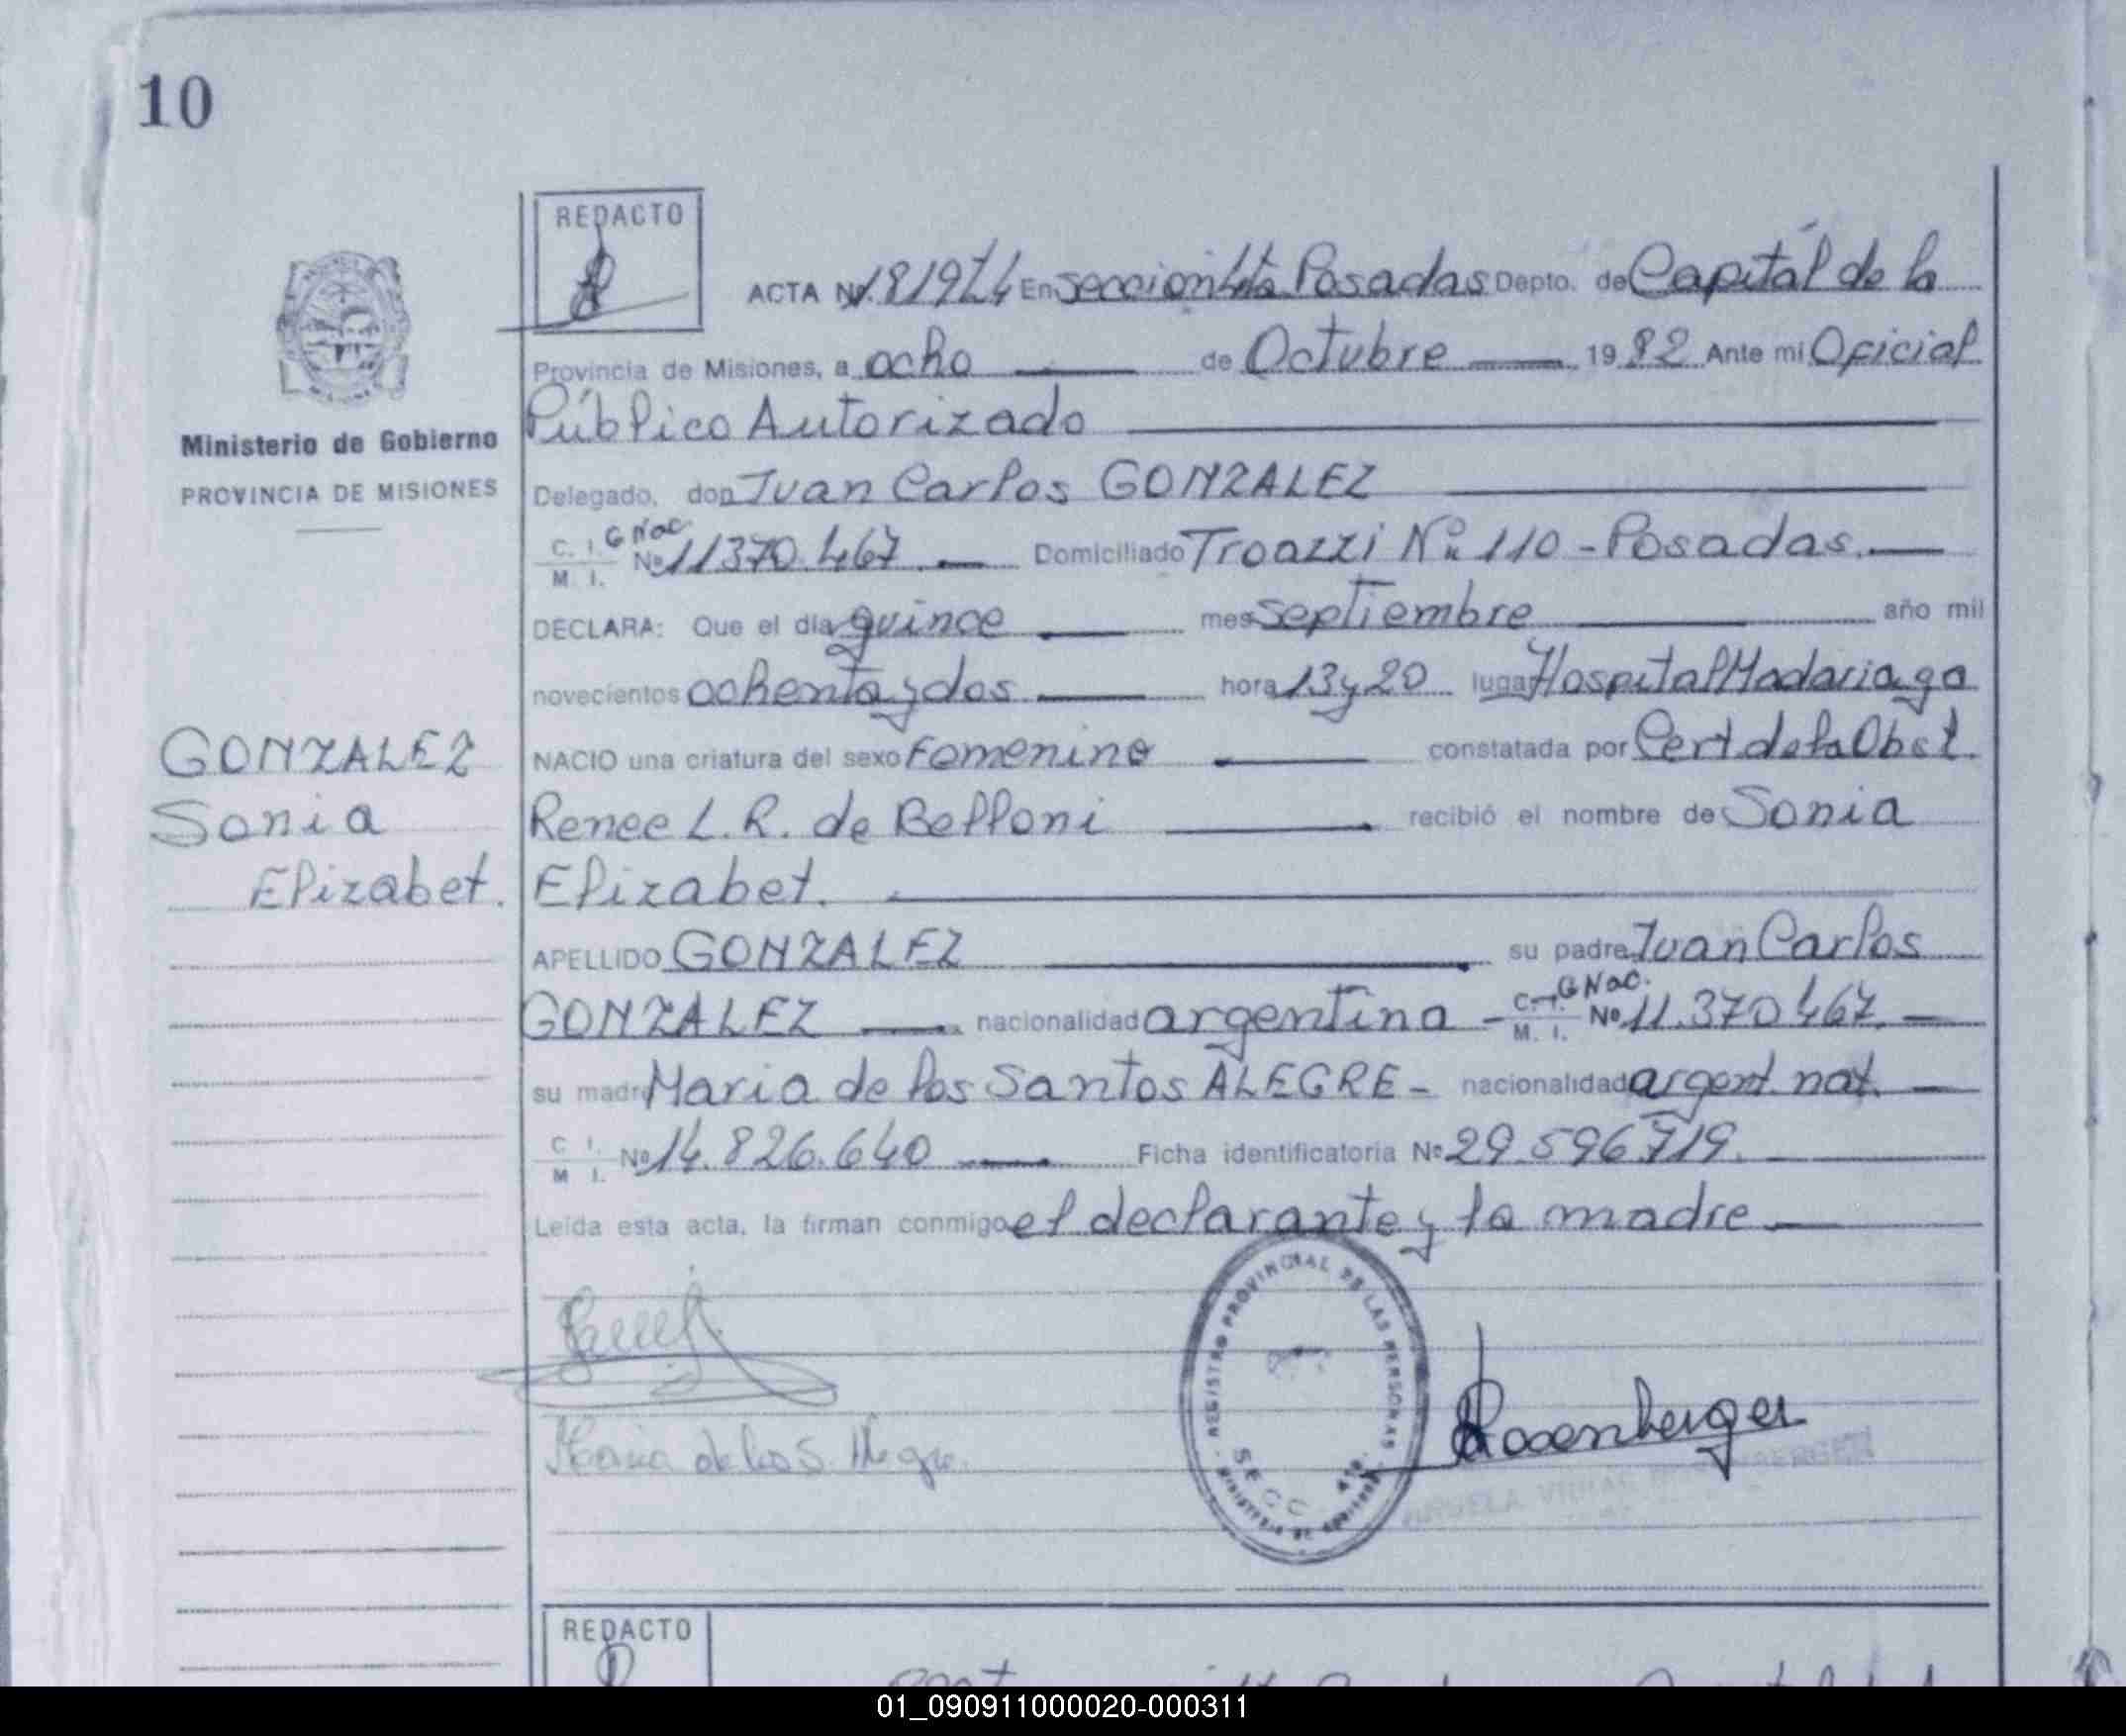 10
REDACTO
ACTA Nº 1819 T4 En Seccion 4ta Posadas Depto. de Capital de la
Provincia de Misiones, a ocho de Octubre 1982 Ante mi Oficial
Público Autorizado
Ministerio de Gobierno
PROVINCIA DE MISIONES
Delegado, don Juan Carlos GONZALEZ
C. I. G Nac.
M. I. Nº 11370.467 Domiciliado Troazzi Nº 110 - Posadas.
DECLARA: Que el día quince mes Septiembre año mil
novecientos ochenta y dos hora 13 y 20 lugar Hospital Madariaga
NACIO una criatura del sexo Femenino constatada por Cert de la Obst.
Renee L. R. de Belloni recibió el nombre de Sonia
Elizabet.
GONZALEZ
Sonia
Elizabet.
APELLIDO GONZALEZ su padre Juan Carlos
GONZALEZ nacionalidad argentina - C. I. G Nac. M. I. Nº 11.370467.
su madre Maria de los Santos ALEGRE - nacionalidad argent. nat.
C I. M I. Nº 14.826.640 Ficha identificatoria Nº 29.596.719.
Leída esta acta, la firman conmigo el declarante y la madre
Maria de los S. Alegre.
REGISTRO PROVINCIAL DE LAS PERSONAS
SECC 4ta.
MINISTERIO DE GOBIERNO
Rosenberger
REDACTO
01_090911000020-000311